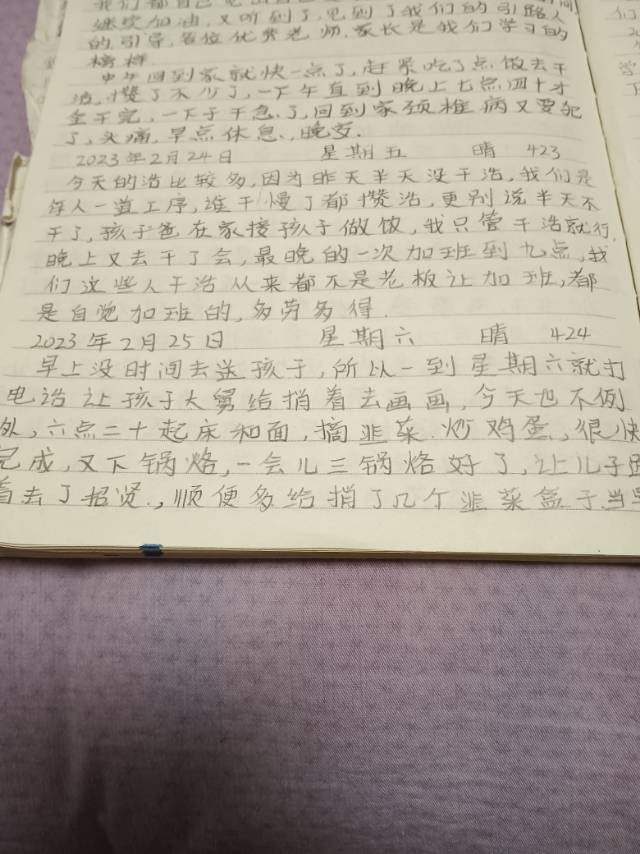 我们都自己
继续加油，又听到了，见到了我们的引路人
的引导，各位优秀老师，家长是我们学习的
榜样
中午回到家就快一点了，赶紧吃了点饭去干
活，攒了不少了，一下午直到晚上七点四十才
全干完，一下子干急了，回到家颈椎病又要犯
了，头痛，早点休息，晚安．
2023年2月24日 星期五 晴 423
今天的活比较多，因为昨天半天没干活，我们是
每人一道工序，谁干慢了都攒活，更别说半天不
干了，孩子爸在家接孩子做饭，我只管干活就行，
晚上又去干了会，最晚的一次加班到九点，我
们这些人干活从来都不是老板让加班，都
是自觉加班的，多劳多得．
2023年2月25日 星期六 晴 424
早上没时间去送孩子，所以一到星期六就打
电话让孩子大舅给捎着去画画，今天也不例
外，六点二十起床和面，摘韭菜．炒鸡蛋，很快
完成，又下锅烙，一会儿三锅烙好了，让儿子跟
着去了招贤．，顺便多给捎了几个韭菜盒子当早